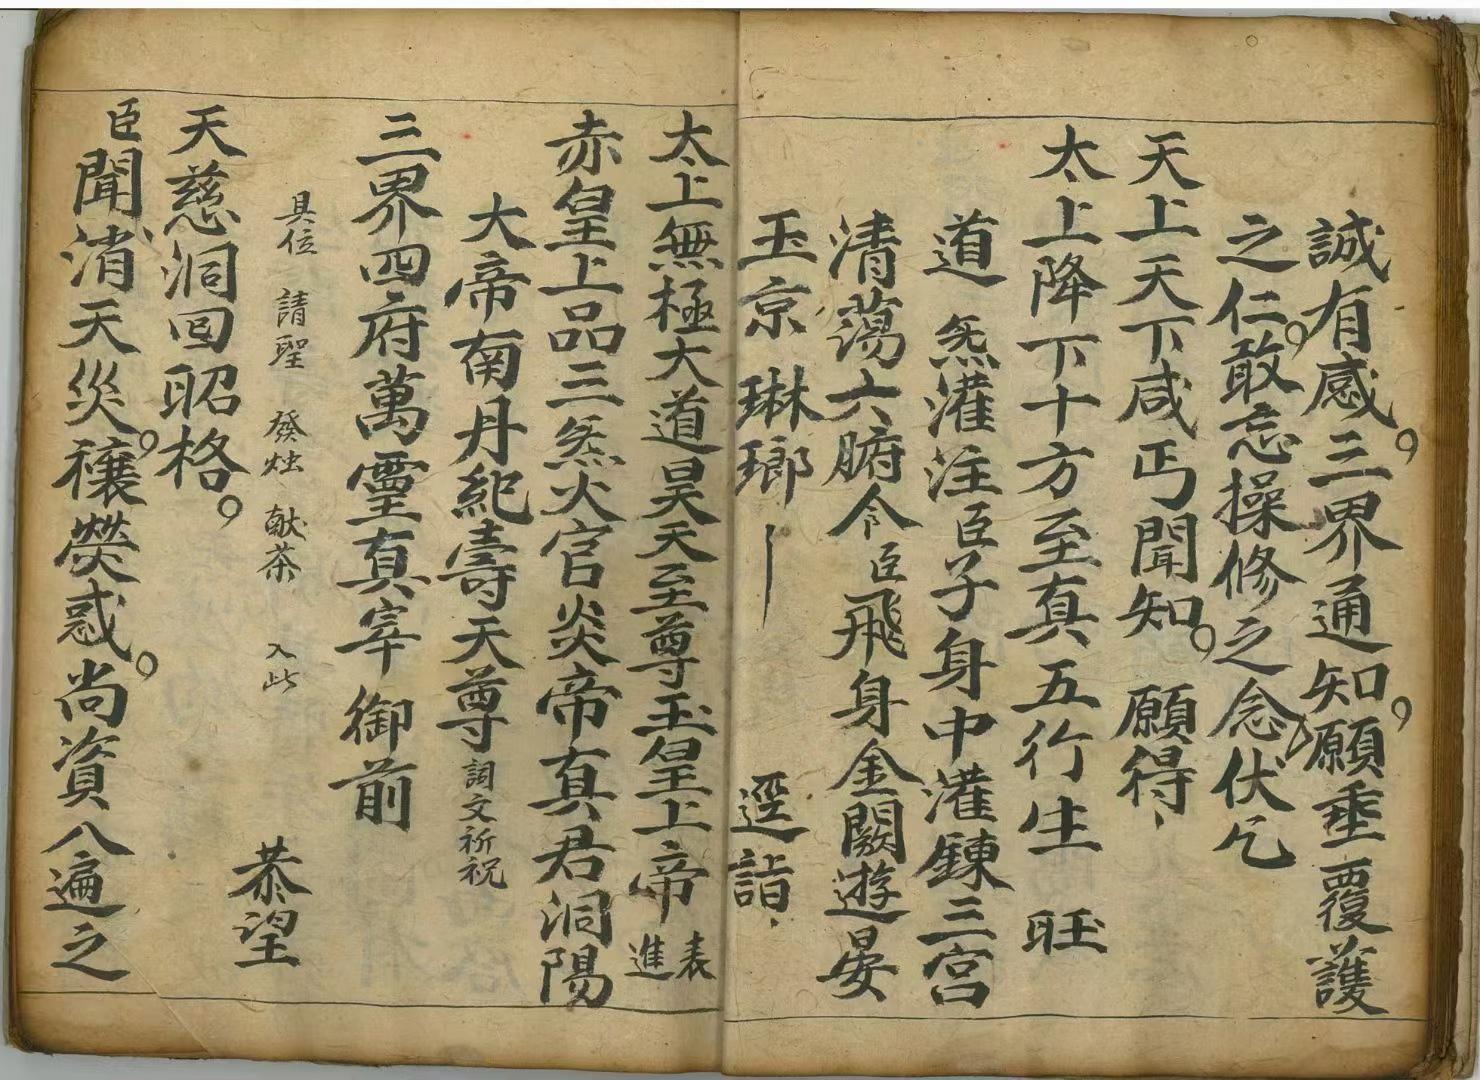 誠有感。三界通知。願垂覆護
之仁。敢忘操修之念。伏乞
天上天下咸丐聞知。願得、
太上降下十方至真五行生旺
道炁灌注臣子身中灌鍊三宮
清蕩六腑令臣飛身金闕遊晏
玉京琳瑯 逕詣、
太上無極大道昊天至尊玉皇上帝進表
赤皇上品三炁火官炎帝真君洞陽
大帝南丹紀壽天尊詞文祈祝
三界四府萬靈真宰御前
具位 請聖 發烛 献茶 入此 恭望
天慈洞回昭格。
臣聞消天災。禳熒惑。尚資八遍之